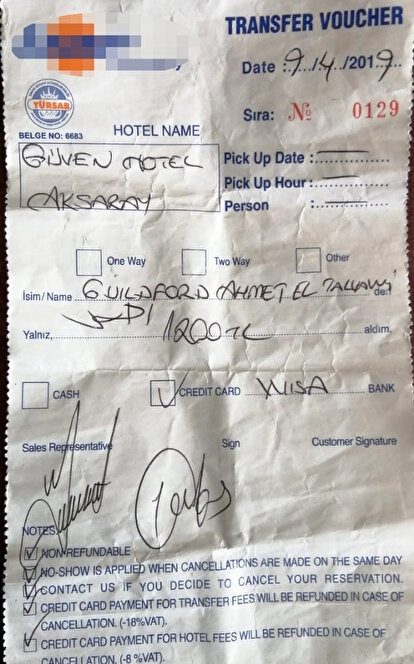 TRANSFER VOUCHER
Date 9/4/2019
TÜRSAB
BELGE NO: 6683
Sıra: № 0129
HOTEL NAME
GÜVEN HOTEL
AKSARAY
Pick Up Date :
Pick Up Hour :
Person :
One Way Two Way Other
İsim / Name GUILDFORD AHMET EL den
Yalnız, 1200 TL aldım.
CASH CREDIT CARD WISA BANK
Sales Representative Sign Customer Signature
NOTES
NON-REFUNDABLE
NO-SHOW IS APPLIED WHEN CANCELLATIONS ARE MADE ON THE SAME DAY
CONTACT US IF YOU DECIDE TO CANCEL YOUR RESERVATION.
CREDIT CARD PAYMENT FOR TRANSFER FEES WILL BE REFUNDED IN CASE OF
CANCELLATION. (-18%VAT).
CREDIT CARD PAYMENT FOR HOTEL FEES WILL BE REFUNDED IN CASE OF
CANCELLATION. (-8 %VAT).